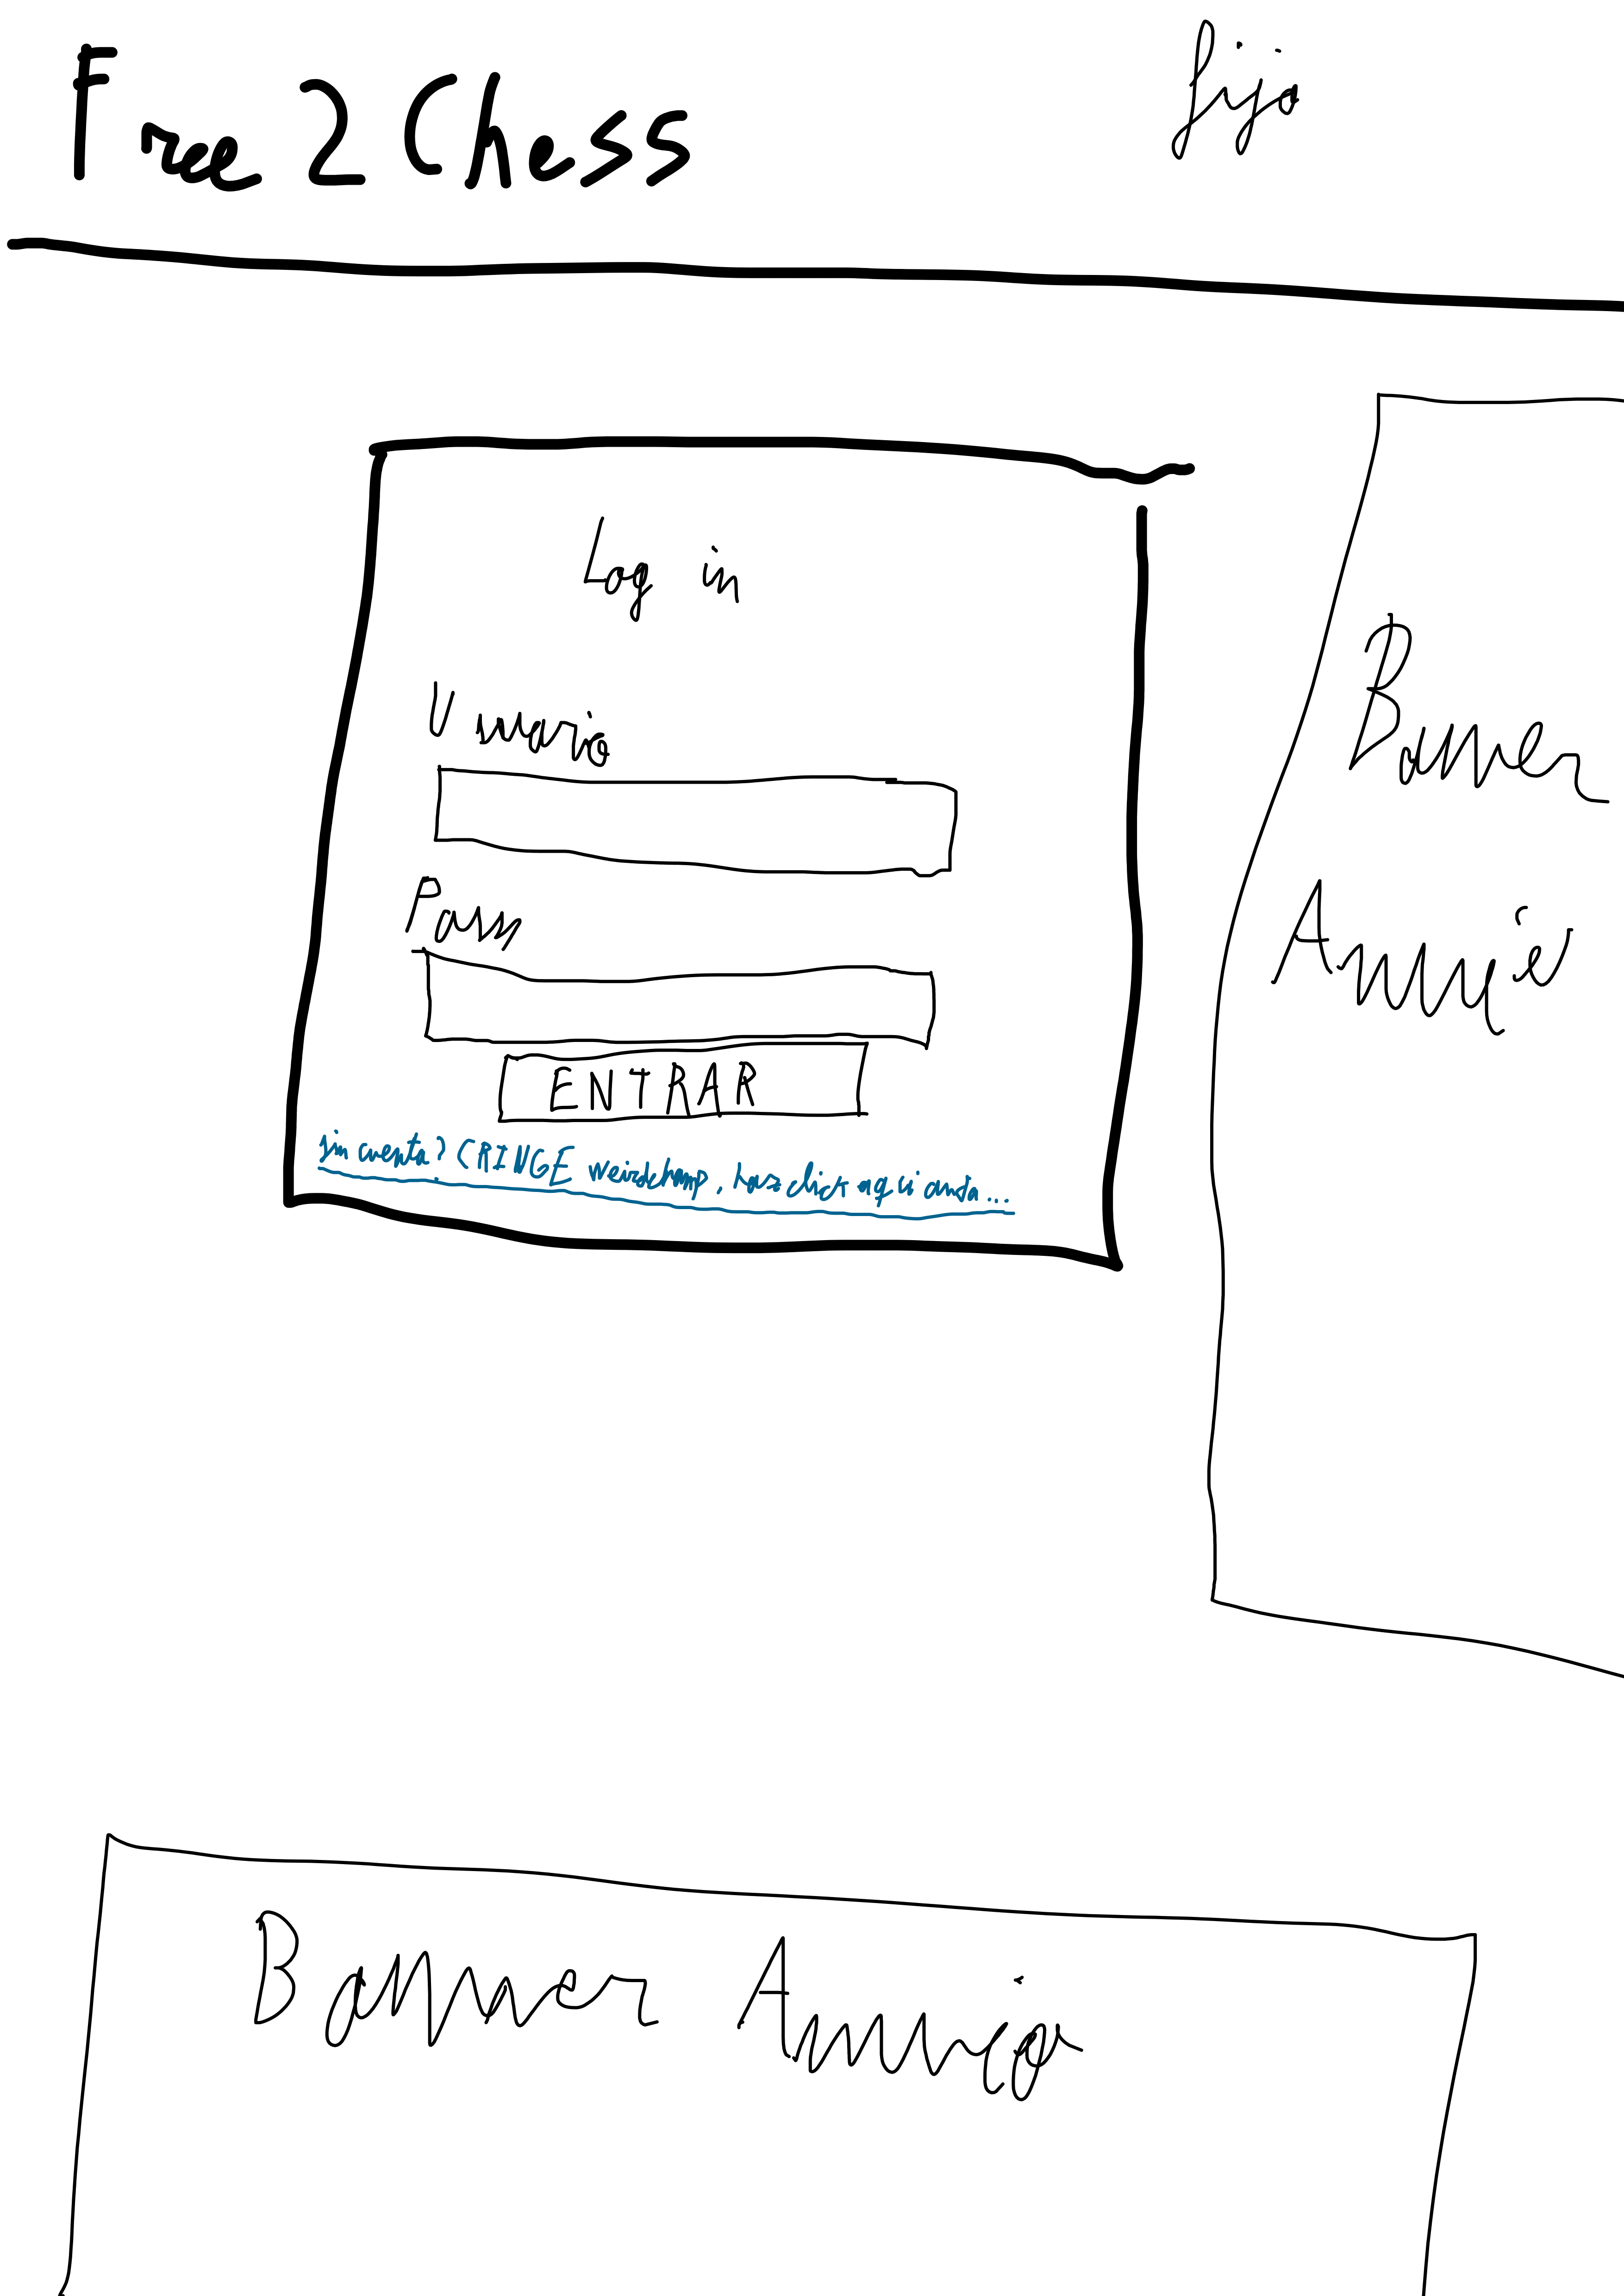 Free 2 Chess
fijo
Log in
Usuario
Pass
ENTRAR
sin cuenta? CRINGE weirdchamp, haz click aqui anda...
Banner
Banner